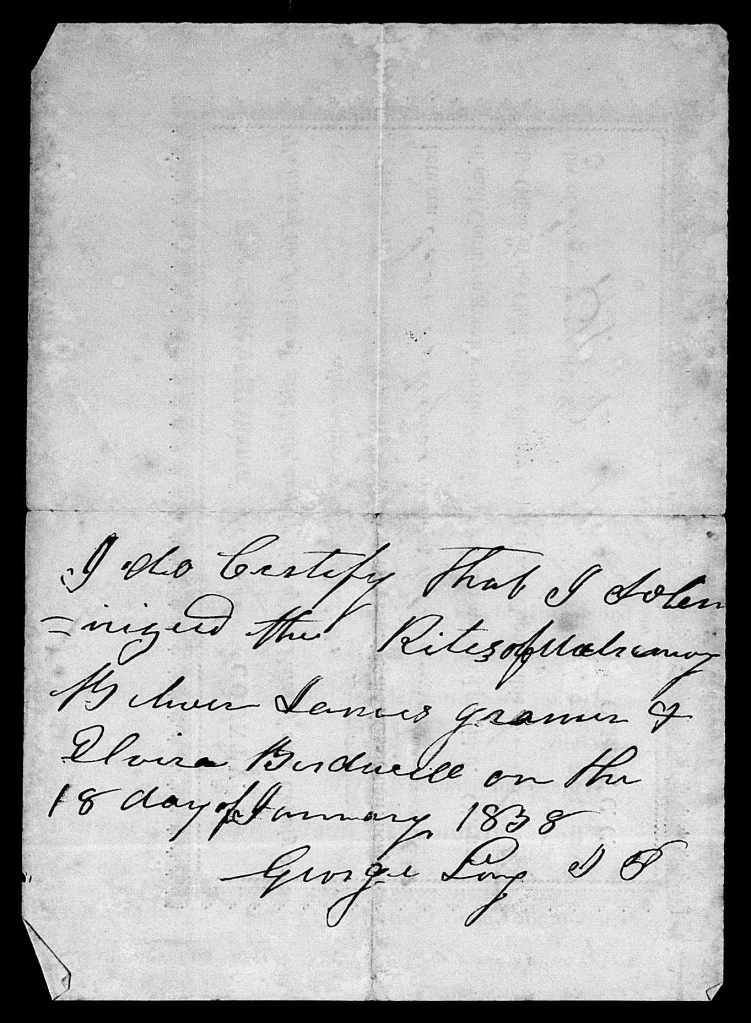 I do Certify that I Solem
=nized the Rites of Matrimony
Between James gramer &
Elvira Birdwell on the
18 day of January 1838
George Long J P